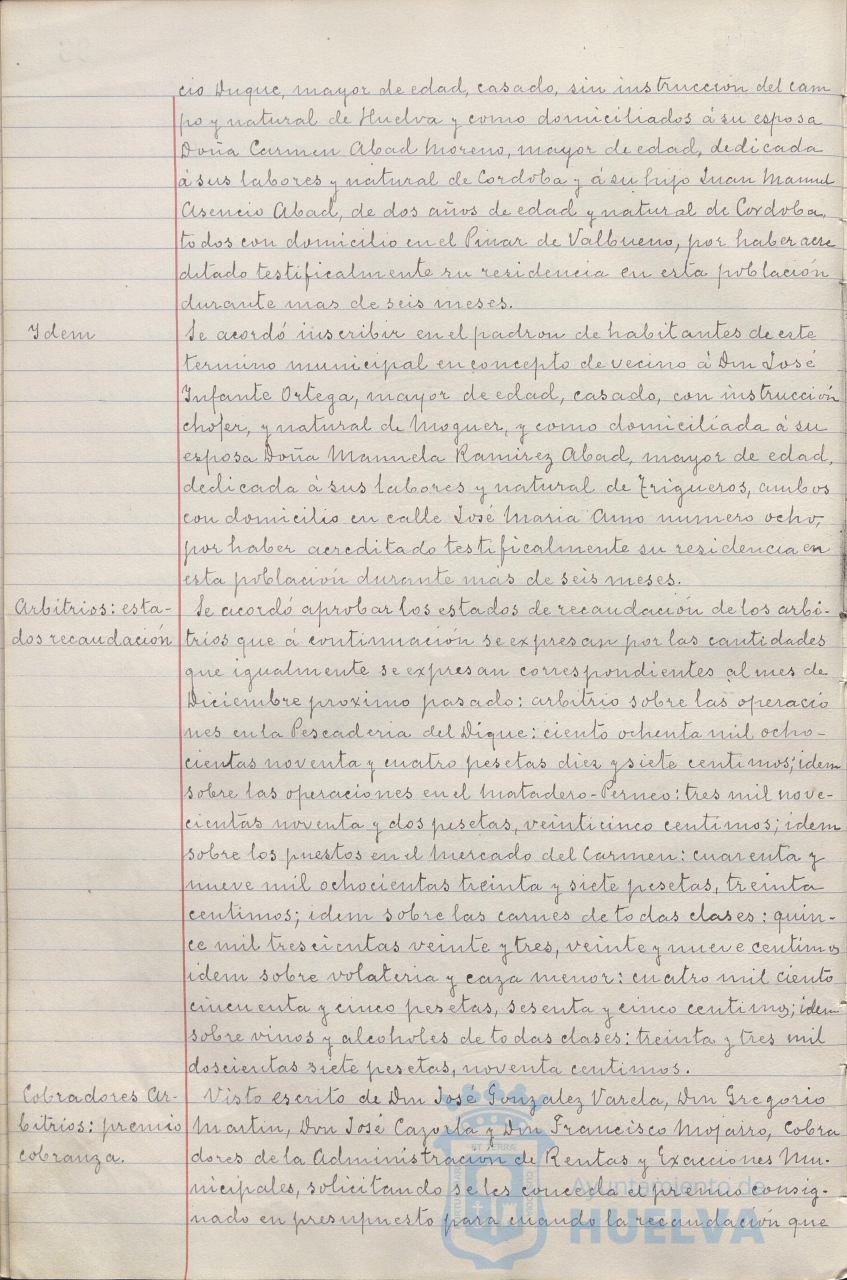 cio Duque, mayor de edad, casado, sin instruccion del cam
po y natural de Huelva y como domiciliados á su esposa
Doña Carmen Abad Moreno, mayor de edad, dedicada
á sus labores y natural de Cordoba y á su hijo Juan Manuel
Asencio Abad, de dos años de edad y natural de Cordoba,
todos con domicilio en el Pinar de Valbueno, por haber acre
ditado testificalmente su residencia en esta población
durante mas de seis meses.
Idem
Se acordó inscribir en el padron de habitantes de este
termino municipal en concepto de vecino á Don José
Infante Ortega, mayor de edad, casado, con instrucción
chofer, y natural de Moguer, y como domiciliada á su
esposa Doña Manuela Ramirez Abad, mayor de edad,
dedicada á sus labores y natural de Trigueros, ambos
con domicilio en calle José Maria Amo numero ocho,
por haber acreditado testificalmente su residencia en
esta población durante mas de seis meses.
Arbitrios: esta-
dos recaudación
Se acordó aprobar los estados de recaudación de los arbi-
trios que á continuación se expresan por las cantidades
que igualmente se expresan correspondientes al mes de
Diciembre proximo pasado: arbitrio sobre las operacio
nes en la Pescaderia del Dique: ciento ochenta mil ocho-
cientas noventa y cuatro pesetas diez y siete centimos; idem
sobre las operaciones en el Matadero-Perneo: tres mil nove-
cientas noventa y dos pesetas, veinticinco centimos; idem
sobre los puestos en el Mercado del Carmen: cuarenta y
nueve mil ochocientas treinta y siete pesetas, treinta
centimos; idem sobre las carnes de todas clases: quin-
ce mil trescientas veinte y tres, veinte y nueve centimos
idem sobre volateria y caza menor: cuatro mil ciento
cincuenta y cinco pesetas, sesenta y cinco centimos; idem
sobre vinos y alcoholes de todas clases: treinta y tres mil
doscientas siete pesetas, noventa centimos.
Cobradores Ar-
bitrios: premio
cobranza.
Visto escrito de Don José Gonzalez Varela, Don Gregorio
Martin, Don José Cazorla y Don Francisco Mojarro, Cobra
dores de la Administración de Rentas y Exacciones Mu-
nicipales, solicitando se les conceda el premio consig-
nado en presupuesto para cuando la recaudación que
Ayuntamiento de
HUELVA